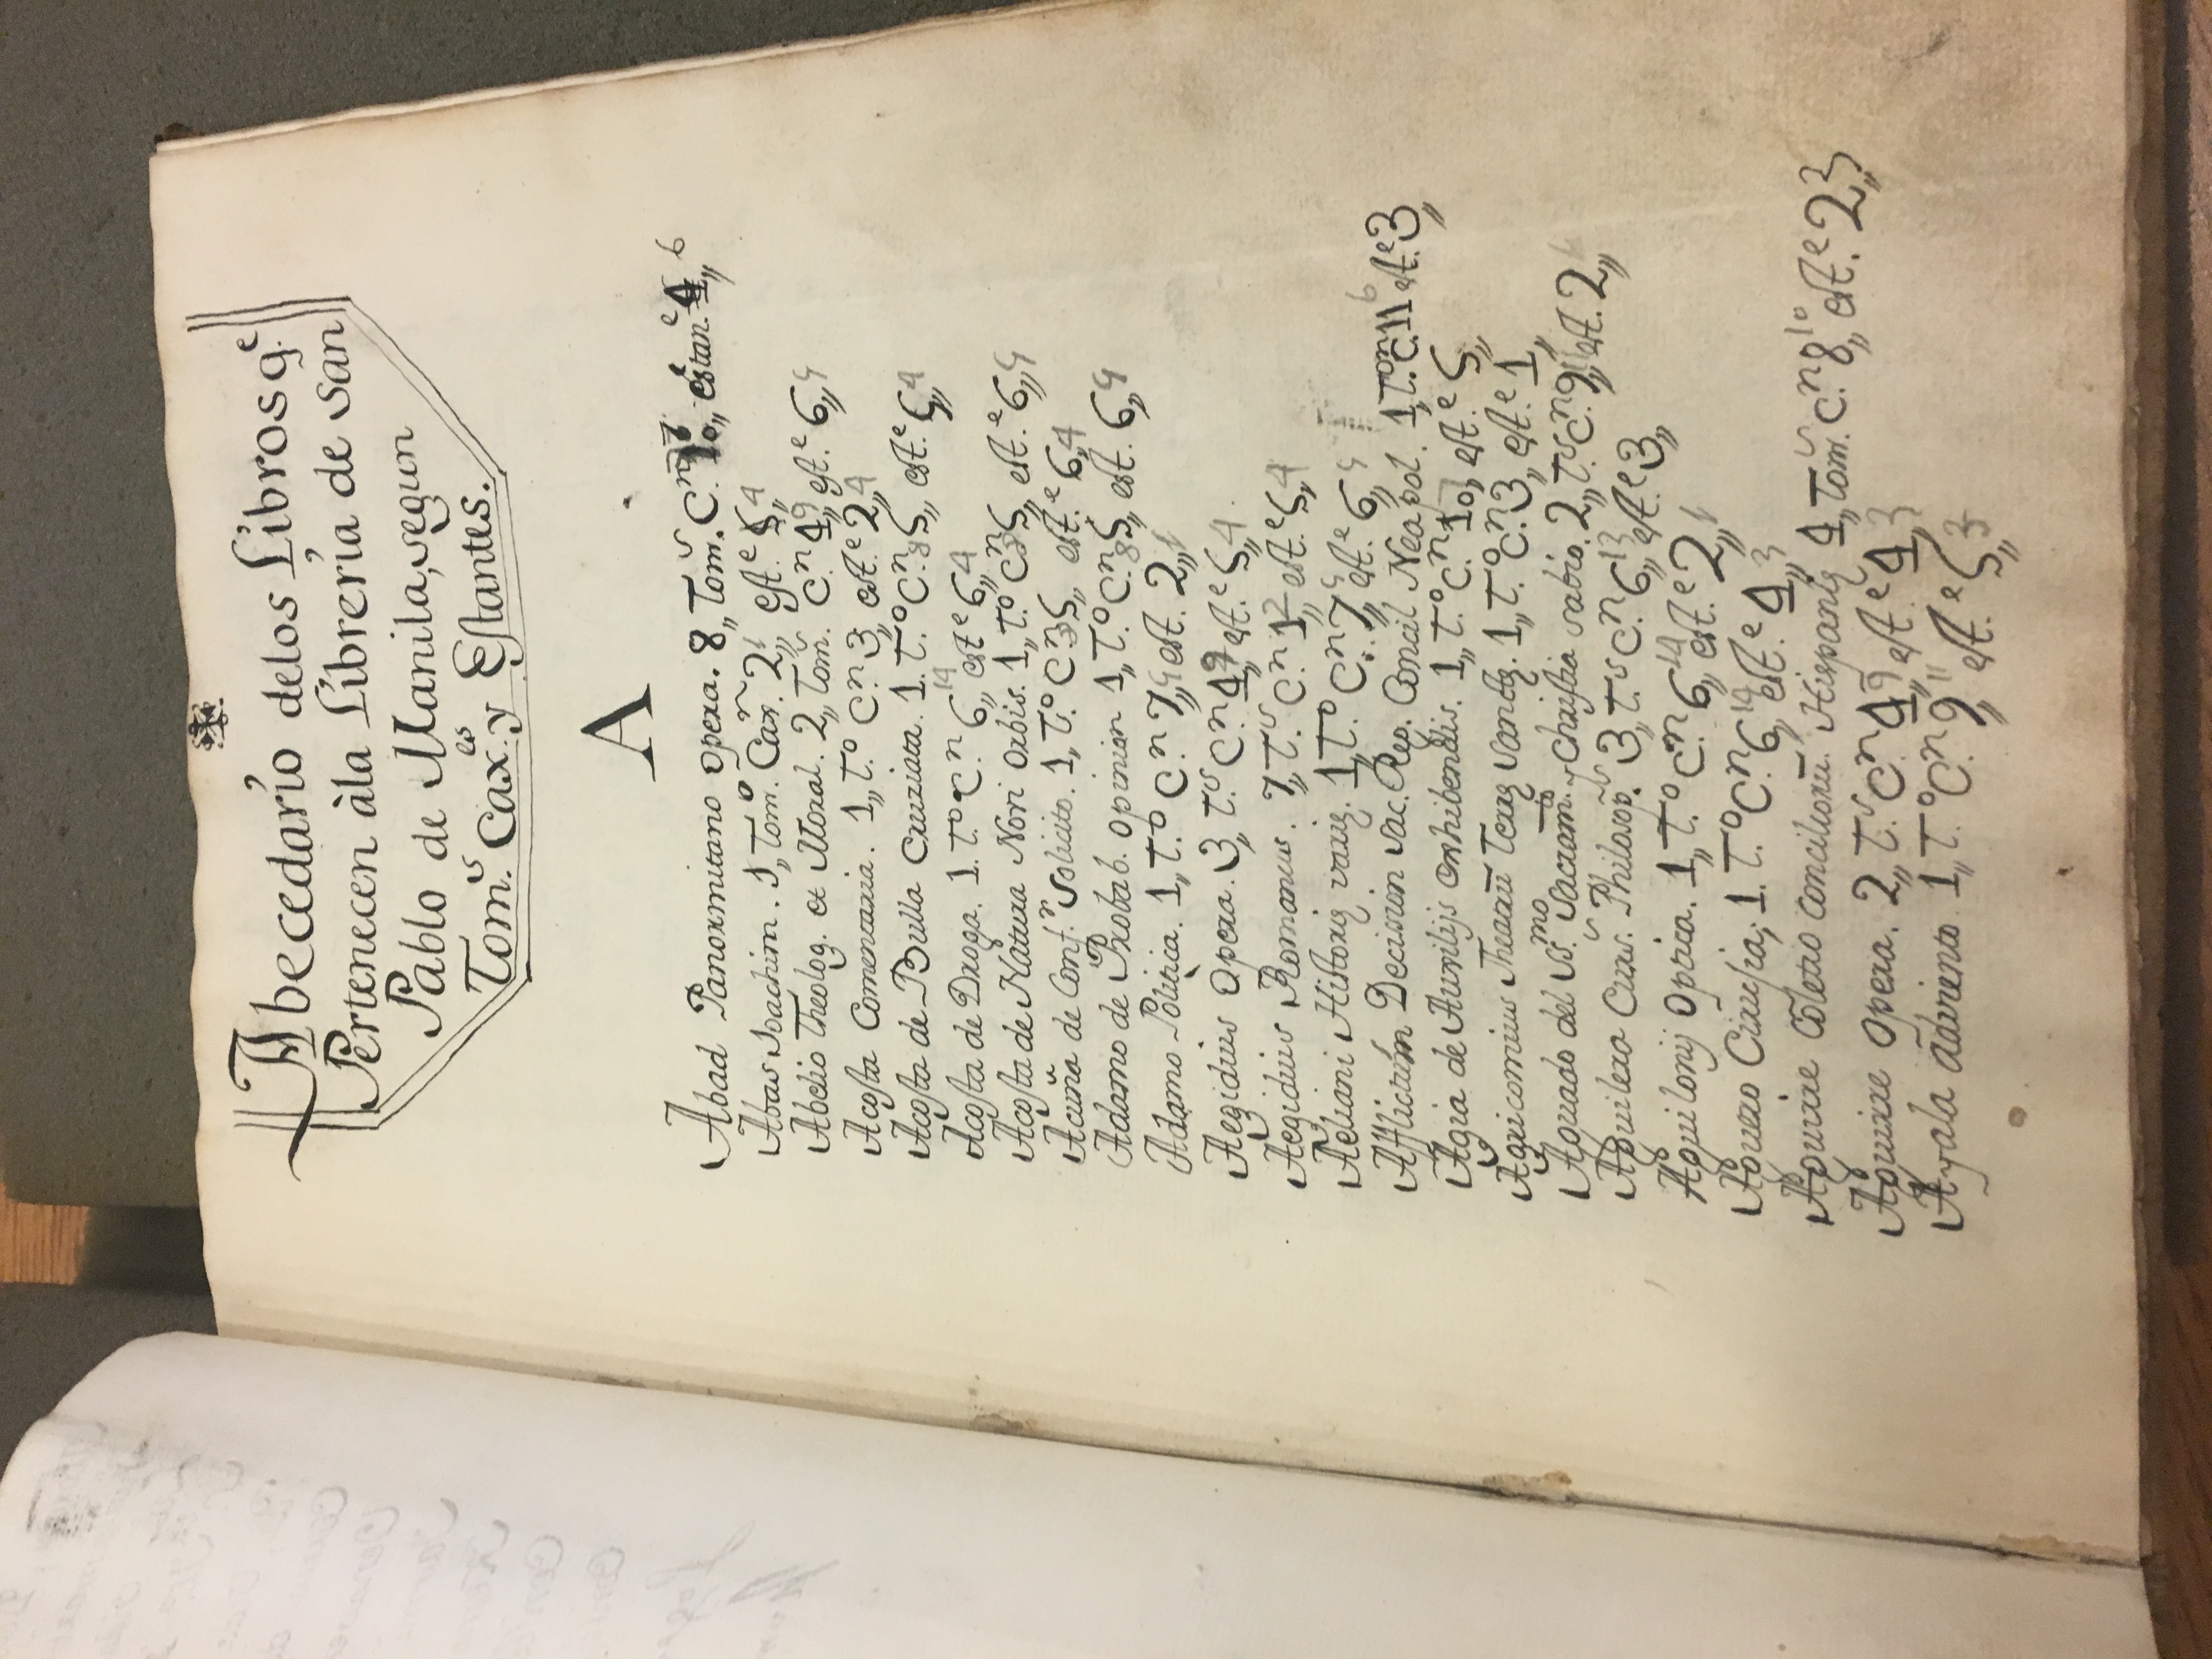 Abecedario delos Libros q.e
Pertenecen àla Libreria de San
Pablo de Manila, segun
Tom.s Cax.es y Estantes.
A
Abad Panormitano opera. 8,, Tom.s C.n estan.e 6
Abas Joachim. 1,, Tom.o Cax.n 2,, 1 est.e 4
Abelio Theolog. et Moral. 2,, Tom.s C.n 4,, 9 est.e 6,, 4
Acosta Comentaria. 1,, T.o C.n 3,, est.e 2,, 4
Acosta de Bulla Cruziata. 1. T.o C.n 8 5,, est.e 5,, 4
Acosta de Droga. 1. T.o C.n 6,, 14 est.e 6,, 4
Acosta de Natura Novi orbis. 1,, T.o C.n 5,, est.e 6,, 4
Acuña de Conf.r solicito. 1,, T.o C.n 5,, est.e 6,, 4
Adamo de Probab. opinion 1,, T.o C.n 8 5,, est. 6,, 4
Adamo Politica. 1,, T.o C.n 7,, 4 est. 2,, 1
Aegidius Opera. 3,, T.s C.n 4,, 9 est.e 5,, 4
Aegidius Romanus. 7,, T.s C.n 1,, 2 est.e 5,, 4
Aeliani Historię varię. 1,, T.o C.n 7,, 4 est.e 6,, 4
Afflictûm Decision Sac. Reg. Concil Neapol. 1,, T.o C.n 11 6 est.e 3,,
Agia de Auxilijs exhibendis. 1,, T.o C.n 10,, 7 est.e 5,,
Agricomius Theatrū Terrę Sanctę. 1,, T.o C.n 3,, est.e 1,,
Aguado del SS.mo Sacram.to y Christia sabio. 2,, T.s C.n 9,, 11 est. 2,,
Aguilera Curs.s Philosop.s 3,, T.s C.n 6,, 13 est.e 3,,
Aguilonij Optica. 1,, T.o C.n 6,, 14 est.e 2,, 1
Aguero Cirusia; 1. T.o C.n 6,, 14 est.e 4,, 3
Aguirre Cōletio conciliorū. Hispanię 4,, Tom.s C.n 8,, 10 est.e 2,, 3
Aguirre Opera. 2,, T.s C.n 4,, 9 est.e 4,, 3
Ayala adviento 1,, T.o C.n 9,, 11 est.e 5,, 3